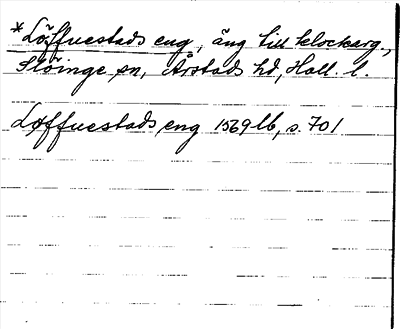 *Löffuestads eng, äng till klockarg.,
Slöinge sn, Årstads hd, Hall. l.
Løffuestads eng 1569 lb, s. 701